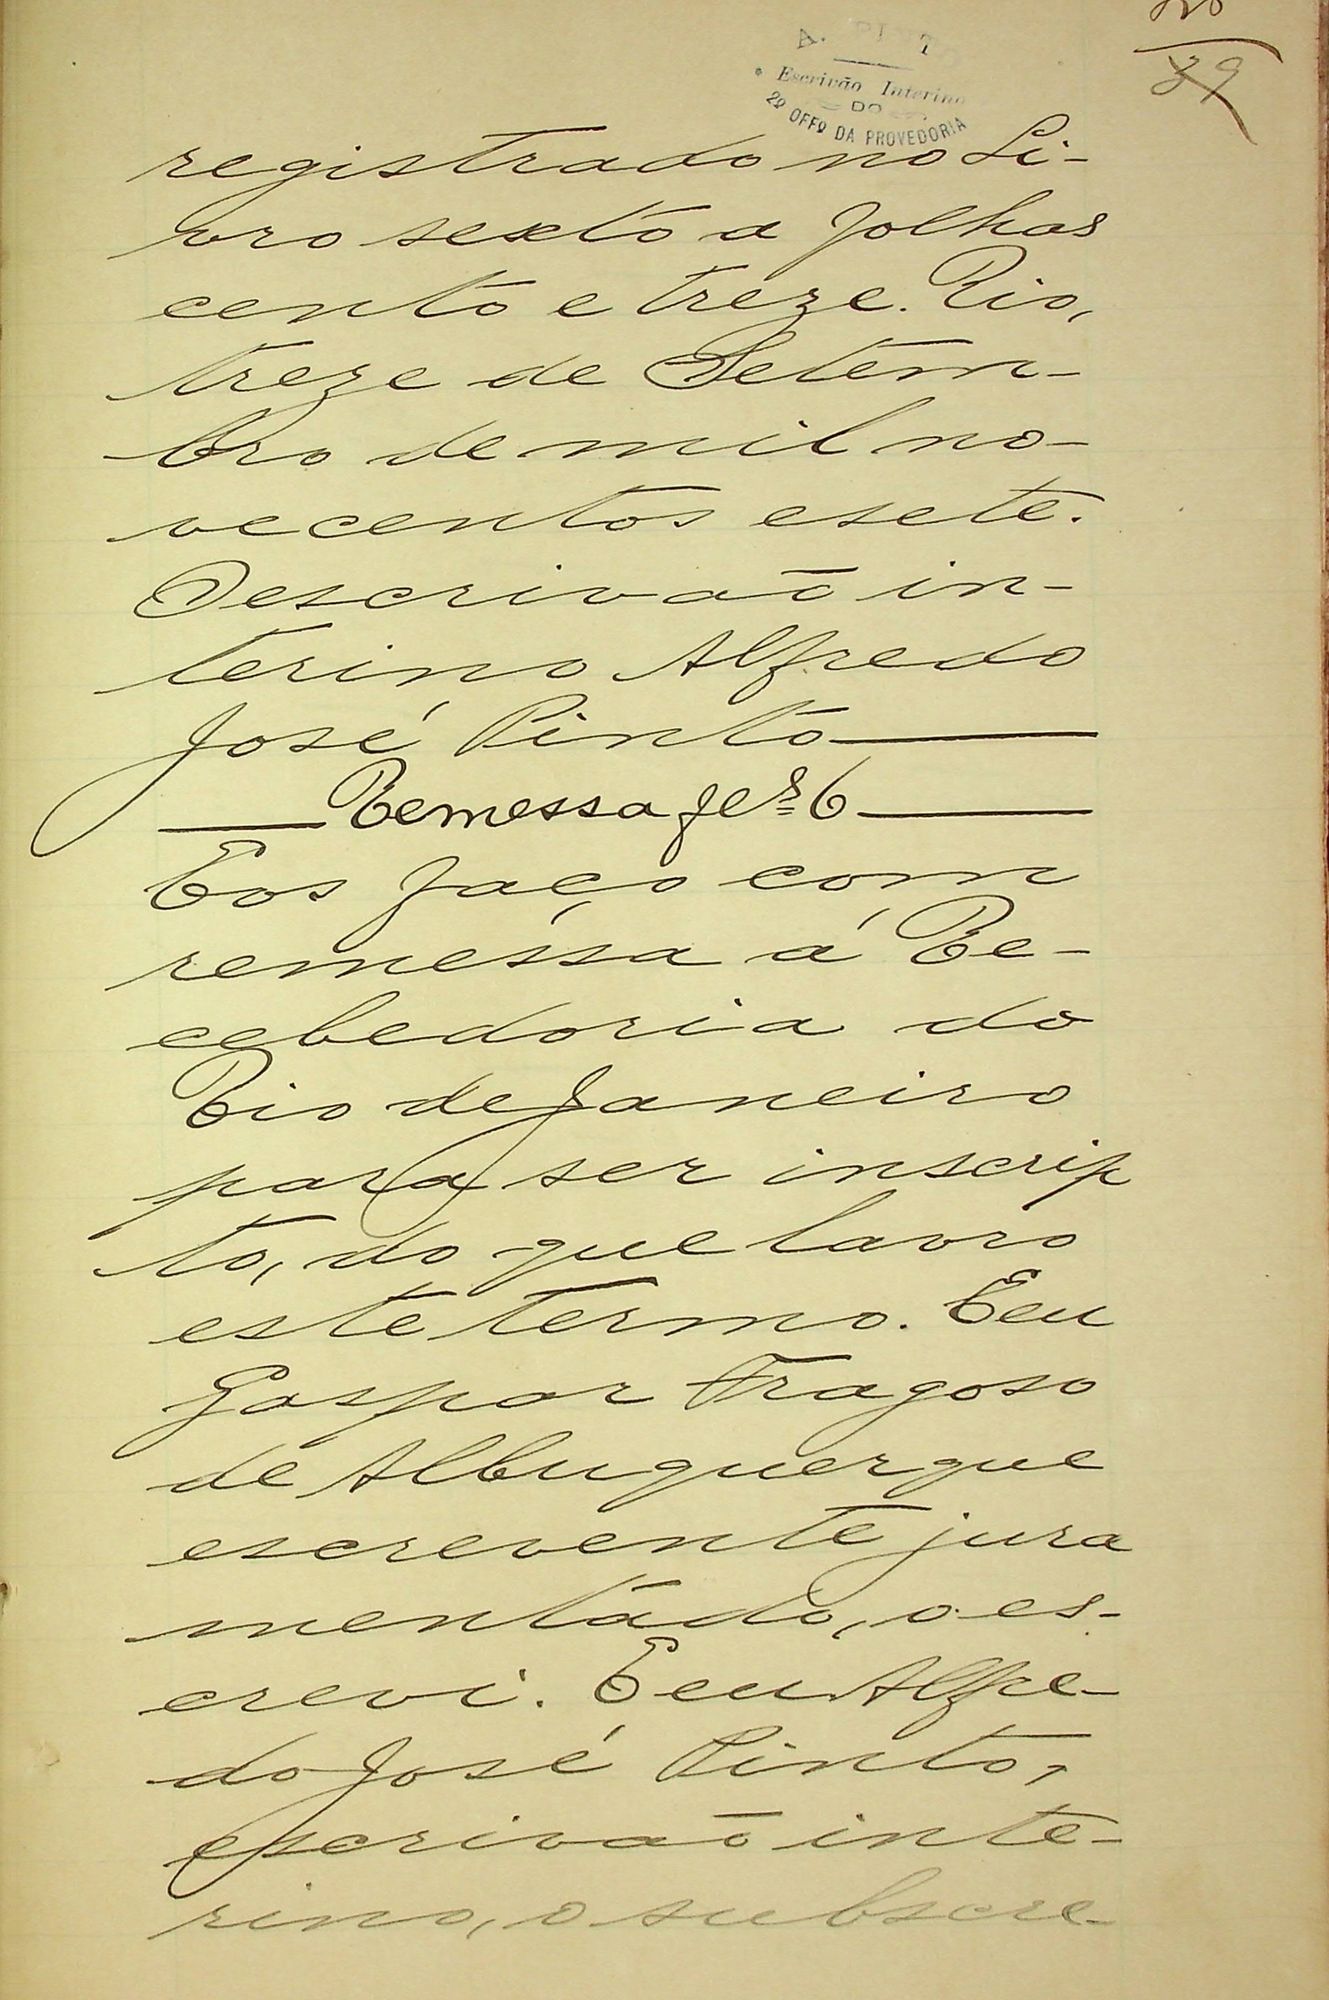 39
A. PINTO
Escrivão Interino
DO
2º OFFº DA PROVEDORIA
registrado no Li-
vro sexto a folhas
cento e treze. Rio,
treze de Setem-
bro de mil no-
vecentos e sete.
O escrivaõ in-
terino Alfredo
José Pinto
Remessa
E os faço com
remessa á Re-
cebedoria do
Rio de Janeiro
para ser inscrip
to, do que lavro
este termo. E eu
Gaspar Fragoso
de Albuquerque
escrevente jura
mentado, o es-
crevi. E eu Alfre-
do José Pinto,
escrivaõ inte-
rino, o subscre-